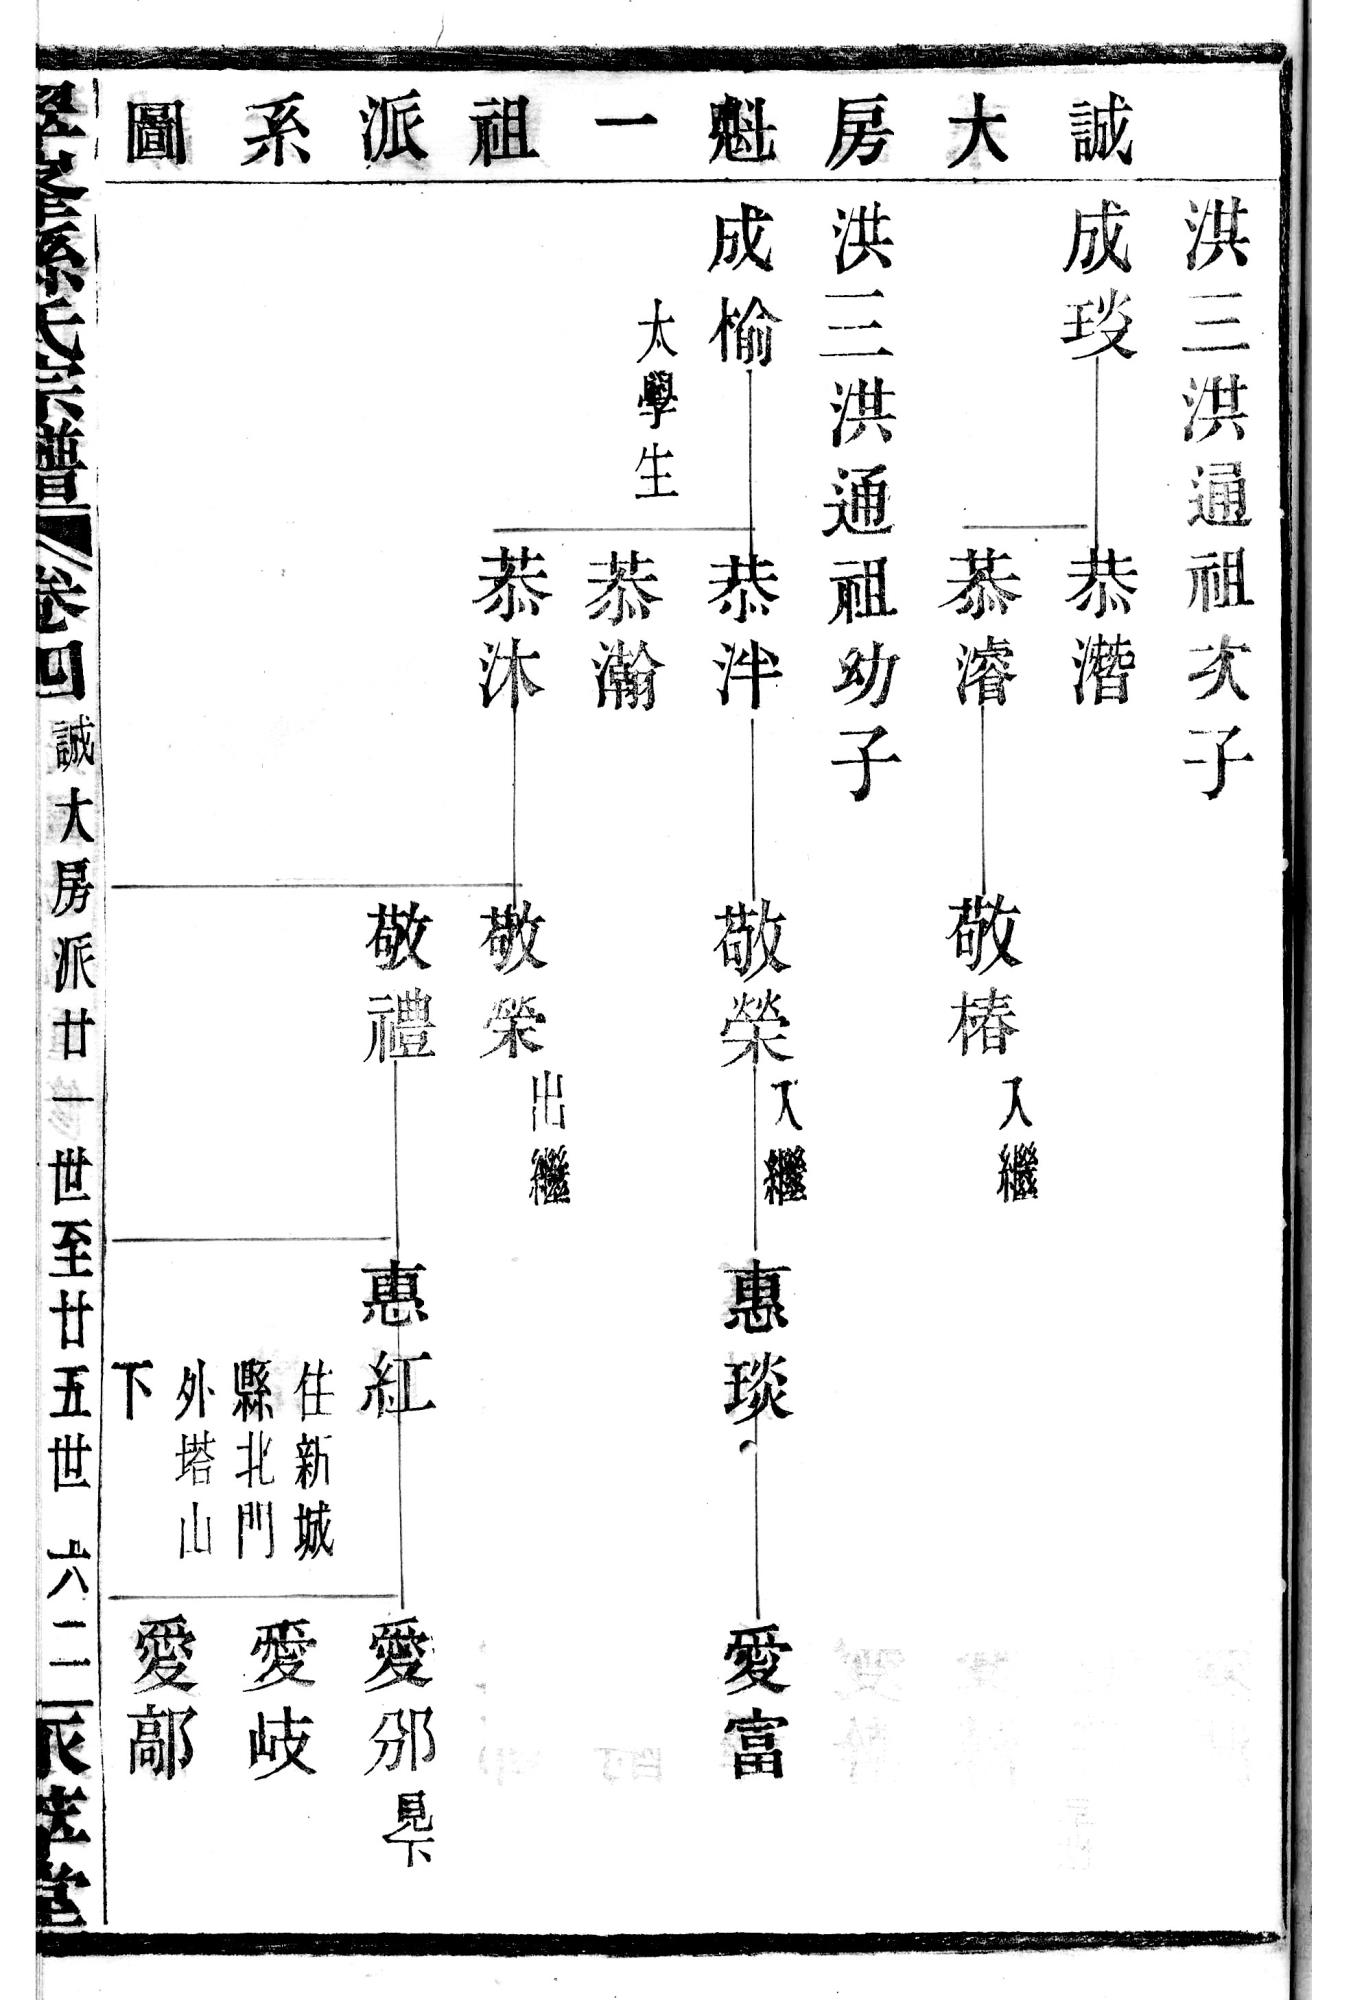 誠大房魁一祖派系圖
洪三洪通祖次子
成琰
恭潛
恭濬
敬椿
入繼
洪三洪通祖幼子
成楡
太學生
恭泮
敬榮
入繼
惠琰
愛富
恭瀚
恭沐
敬榮
出繼
敬禮
惠紅
住新城
縣北門
外塔山
下
愛邠
見下
愛岐
愛鄗
孫氏宗譜
卷四
誠大房派廿一世至廿五世
六二
堂